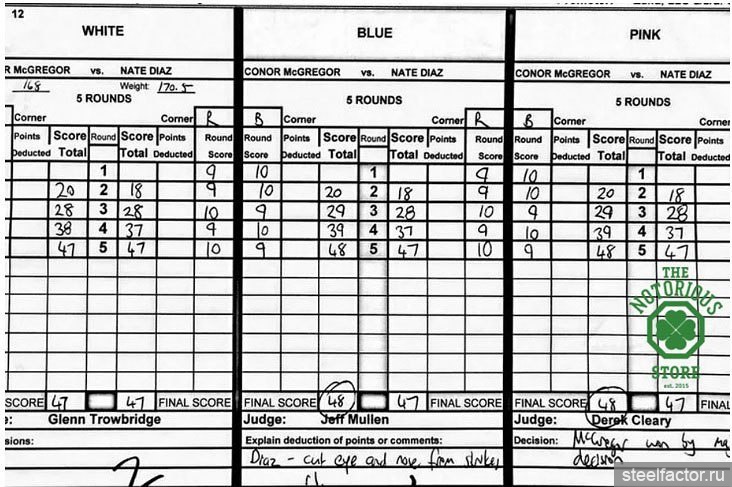 12
WHITE BLUE PINK
R McGREGOR vs. NATE DIAZ CONOR McGREGOR vs. NATE DIAZ CONOR McGREGOR vs. NATE DIAZ
168 Weight: 170.5
5 ROUNDS 5 ROUNDS 5 ROUNDS
Corner Corner R B Corner Corner R B Corner Corner
Points Score Round Score Points Round Round Points Score Round Score Points Round Round Points Score Round Score Points
Deducted Total Total Deducted Score Score Deducted Total Total Deducted Score Score Deducted Total Total Deducted
1 9 10 1 9 10 1
20 2 18 9 10 20 2 18 9 10 20 2 18
28 3 28 10 9 29 3 28 10 9 29 3 28
38 4 37 9 10 39 4 37 9 10 39 4 37
47 5 47 10 9 48 5 47 10 9 48 5 47
THE
NOTORIOUS
STORE
est. 2015
SCORE 47 47 FINAL SCORE FINAL SCORE 48 47 FINAL SCORE FINAL SCORE 48 47 FINAL
Glenn Trowbridge Judge: Jeff Mullen Judge: Derek Cleary
sions: Explain deduction of points or comments: Decision: McGregor won by
Diaz - cut eye and nose from strikes decision
steelfactor.ru